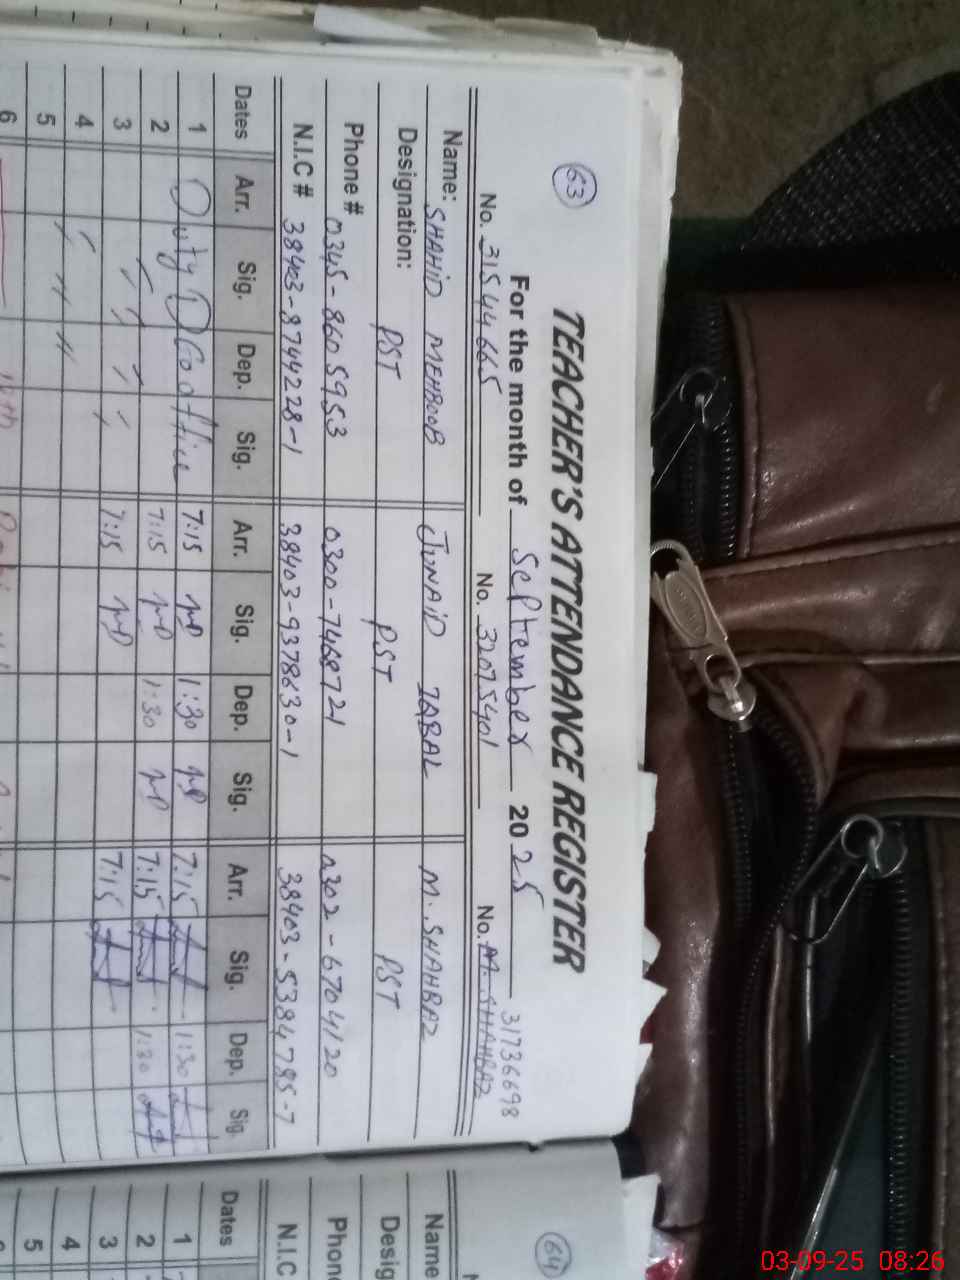 63
TEACHER'S ATTENDANCE REGISTER
For the month of September 2025
31736698
No. 31544665 No. 32075401 No. M. SHAHBAZ
Name: SHAHID MEHBOOB JUNAID IQBAL M. SHAHBAZ
Designation: PST PST PST
Phone # 0345-8605953 0300-7468721 0302-6704120
N.I.C # 38403-8744228-1 38403-9378630-1 38403-5384795-7
Dates Arr. Sig. Dep. Sig. Arr. Sig. Dep. Sig. Arr. Sig. Dep. Sig.
1 Duty D Eo office 7:15 1:30 7:15 1:30
2 7:15 1:30 7:15 1:30
3 7:15 7:15
4
5
6
64
Name
Desig
Phon
N.I.C
Dates
1
2
3
4
5
03-09-25 08:26